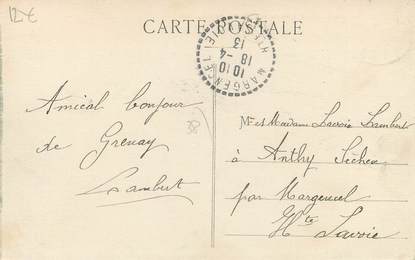 12€
CARTE POSTALE
MARGENCEL
10 10
18 -4
13
Amical bonjour
de Grenay
Lambert
38
Mr et Madame Lavoie Lambert
à Anthy Séchex
par Margencel
Hte Savoie